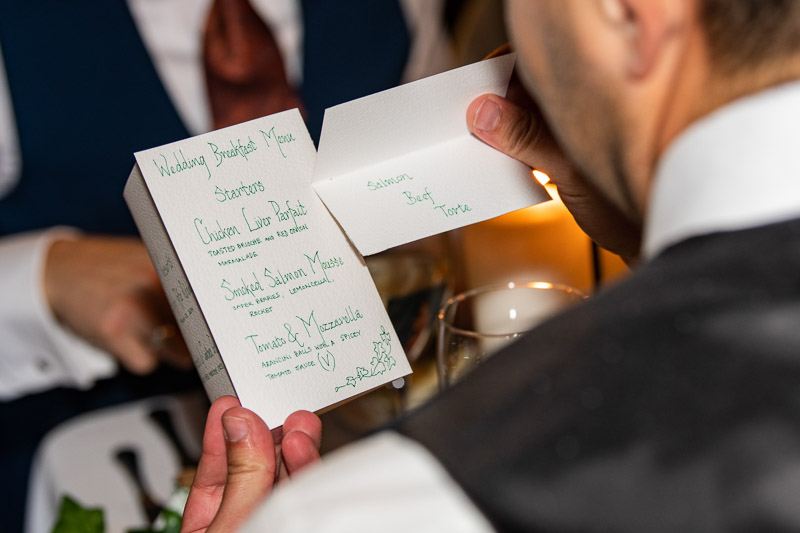 Wedding Breakfast Menu
Starters
Chicken Liver Parfait
TOASTED BRIOCHE AND RED ONION
MARMALADE
Smoked Salmon Mousse
CAPER BERRIES, LEMON
ROCKET
Tomato & Mozzarella
ARANCINI BALLS WITH A SPICEY
TOMATO SAUCE V
Salmon
Beef
Torte